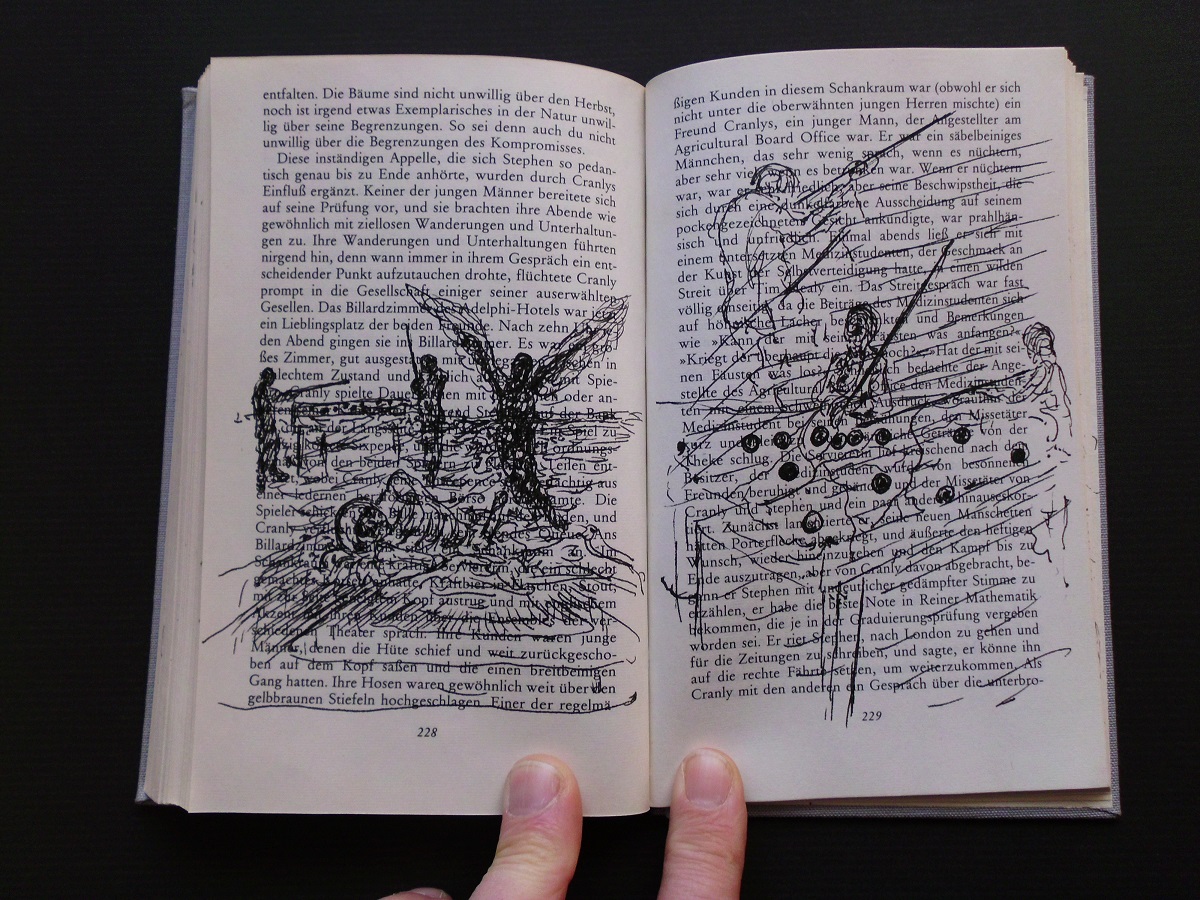 entfalten. Die Bäume sind nicht unwillig über den Herbst,
noch ist irgend etwas Exemplarisches in der Natur unwil-
lig über seine Begrenzungen. So sei denn auch du nicht
unwillig über die Begrenzungen des Kompromisses.
Diese inständigen Appelle, die sich Stephen so pedan-
tisch genau bis zu Ende anhörte, wurden durch Cranlys
Einfluß ergänzt. Keiner der jungen Männer bereitete sich
auf seine Prüfung vor, und sie brachten ihre Abende wie
gewöhnlich mit ziellosen Wanderungen und Unterhaltun-
gen zu. Ihre Wanderungen und Unterhaltungen führten
nirgend hin, denn wann immer in ihrem Gespräch ein ent-
scheidender Punkt aufzutauchen drohte, flüchtete Cranly
prompt in die Gesellschaft einiger seiner auserwählten
Gesellen. Das Billardzimmer des Adelphi-Hotels war jetzt
ein Lieblingsplatz der beiden Freunde. Nach zehn Uhr
den Abend gingen sie ins Billardzimmer. Es war ein gro-
ßes Zimmer, gut ausgestattet mit in
schlechtem Zustand und mit Spie-
Cranly spielte mit oder an-
Stephen auf der Bank
an der Spiel zu
Sixpence, ordnungs-
von den beiden Spielern zu Teilen ent-
wobei Cranly aus
einer ledernen Börse Die
Spieler und
Cranly Ans
Billardzimmer ein Schankraum Im
Schankraum eine ein schlecht
gemachtes Korsett anhatte, Kraftbier in Flaschen, Stout,
mit zur Seite Kopf austrug und mit englischem
Akzent mit ihren Kunden über die Ensembles der ver-
schiedenen Theater sprach. Ihre Kunden waren junge
Männer, denen die Hüte schief und weit zurückgescho-
ben auf dem Kopf saßen und die einen breitbeinigen
Gang hatten. Ihre Hosen waren gewöhnlich weit über den
gelbbraunen Stiefeln hochgeschlagen. Einer der regelmä-
228
ßigen Kunden in diesem Schankraum war (obwohl er sich
nicht unter die oberwähnten jungen Herren mischte) ein
Freund Cranlys, ein junger Mann, der Angestellter am
Agricultural Board Office war. Er war ein säbelbeiniges
Männchen, das sehr wenig sprach, wenn es nüchtern,
aber sehr viel, wenn es betrunken war. Wenn er nüchtern
war, war er sehr friedlich, aber seine Beschwipstheit, die
sich durch eine dunkelfarbene Ausscheidung auf seinem
pockengezeichneten Gesicht ankündigte, war prahlhän-
sisch und unfriedlich. Einmal abends ließ er sich mit
einem untersetzten Medizinstudenten, der Geschmack an
der Kunst der Selbstverteidigung hatte, in einen wilden
Streit über Tim Healy ein. Das Streitgespräch war fast
völlig einseitig, da die Beiträge des Medizinstudenten sich
auf höhnische Lacher beschränkten und Bemerkungen
wie »Kann der mit seinen Fäusten was anfangen?«,
»Kriegt der überhaupt die hoch?«, »Hat der mit sei-
nen Fäusten was los?« bedachte der Ange-
stellte des Agricultural Board Office den Medizinstuden-
ten mit einem Ausdruck, worauf der
Medizinstudent bei seinen den Missetäter
kurz und Getränke von der
Theke schlug. Die Serviererin lief kreischend nach dem
Besitzer, der Medizinstudent wurde von besonnenen
Freunden beruhigt und und der Missetäter von
Cranly und Stephen und ein paar andern hinauseskor-
tiert. Zunächst lamentierte er, seine neuen Manschetten
hätten Porterflecke abgekriegt, und äußerte den heftigen
Wunsch, wieder hineinzugehen und den Kampf bis zu
Ende auszutragen, aber von Cranly davon abgebracht, be-
gann er Stephen mit undeutlicher gedämpfter Stimme zu
erzählen, er habe die beste Note in Reiner Mathematik
bekommen, die je in der Graduierungsprüfung vergeben
worden sei. Er riet Stephen, nach London zu gehen und
für die Zeitungen zu schreiben, und sagte, er könne ihn
auf die rechte Fährte setzen, um weiterzukommen. Als
Cranly mit den anderen ein Gespräch über die unterbro-
229